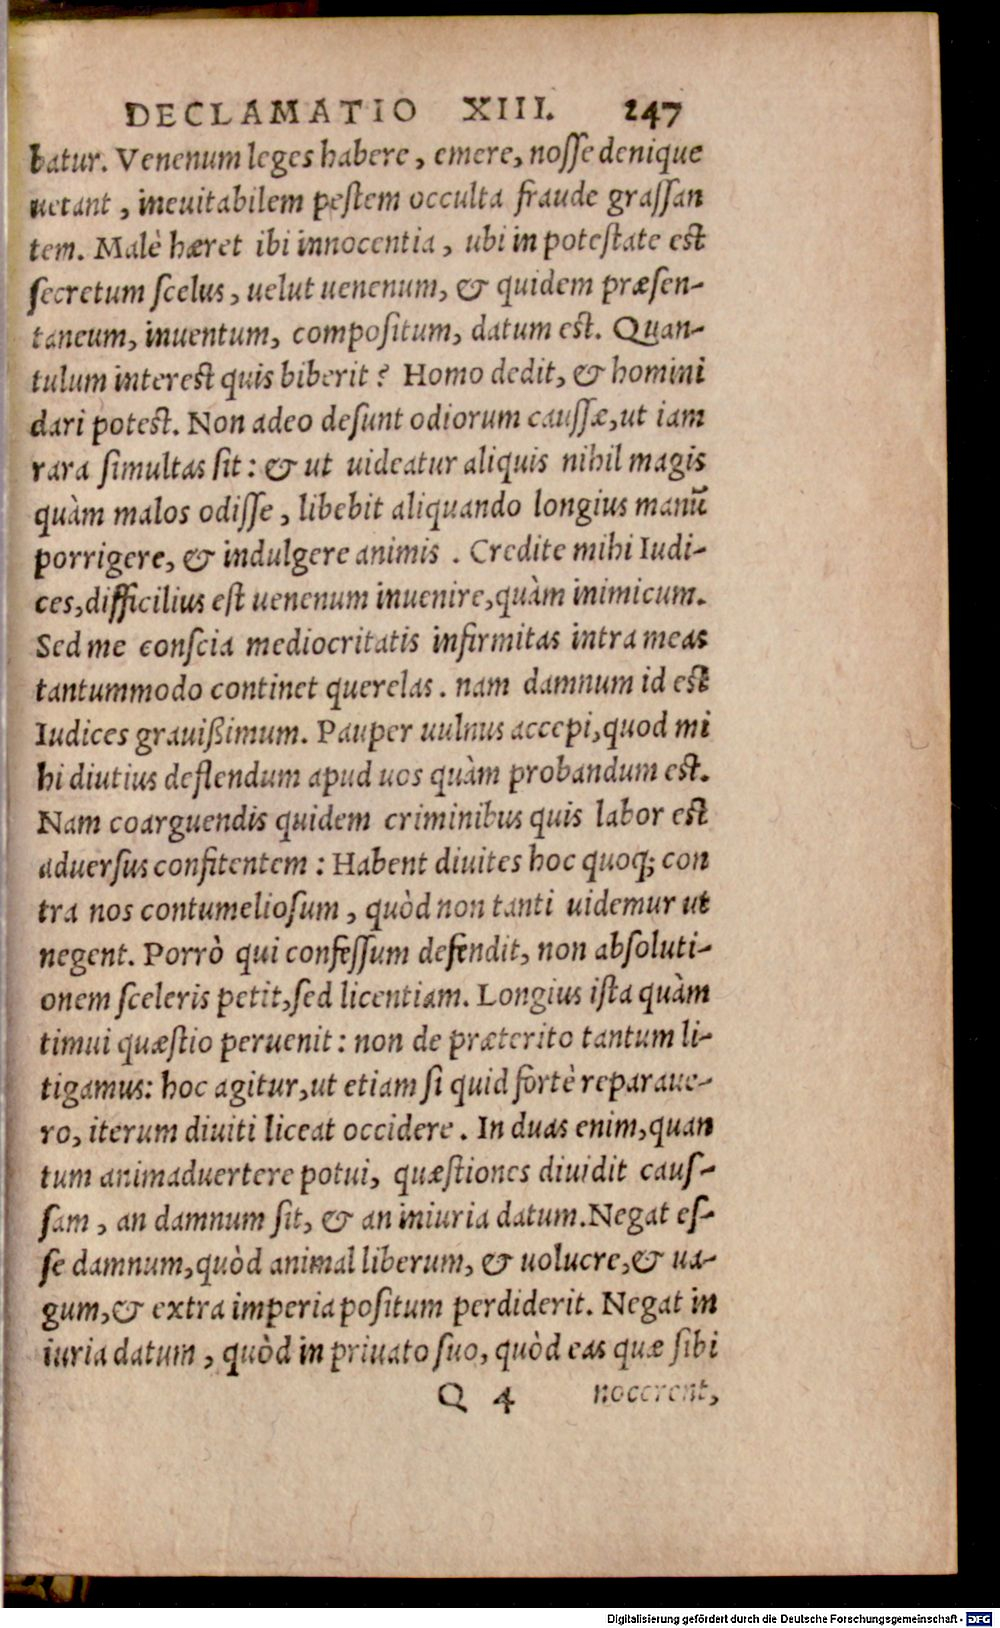 DECLAMATIO XIII. 247
batur. Venenum leges habere, emere, noſſe denique
uetant, ineuitabilem peſtem occulta fraude graſſan
tem. Malè hæret ibi innocentia, ubi in poteſtate eſt
ſecretum ſcelus, uelut uenenum, & quidem præſen-
taneum, inuentum, compoſitum, datum eſt. Quan-
tulum intereſt quis biberit? Homo dedit, & homini
dari poteſt. Non adeo deſunt odiorum cauſſæ, ut iam
rara ſimultas ſit: & ut uideatur aliquis nihil magis
quàm malos odiſſe, libebit aliquando longius manū
porrigere, & indulgere animis. Credite mihi Iudi-
ces, difficilius eſt uenenum inuenire, quàm inimicum.
Sed me conſcia mediocritatis infirmitas intra meas
tantummodo continet querelas. nam damnum id eſt
Iudices grauißimum. Pauper uulnus accepi, quod mi
hi diutius deflendum apud uos quàm probandum eſt.
Nam coarguendis quidem criminibus quis labor eſt
aduerſus confitentem: Habent diuites hoc quoq; con
tra nos contumelioſum, quòd non tanti uidemur ut
negent. Porrò qui confeſſum defendit, non abſoluti-
onem ſceleris petit, ſed licentiam. Longius iſta quàm
timui quæſtio peruenit: non de præterito tantum li-
tigamus: hoc agitur, ut etiam ſi quid fortè reparaue-
ro, iterum diuiti liceat occidere. In duas enim, quan
tum animaduertere potui, quæſtiones diuidit cauſ-
ſam, an damnum ſit, & an iniuria datum. Negat eſ-
ſe damnum, quòd animal liberum, & uolucre, & ua-
gum, & extra imperia poſitum perdiderit. Negat in
iuria datum, quòd in priuato ſuo, quòd eas quæ ſibi
Q 4 nocerent,
Digitalisierung gefördert durch die Deutsche Forschungsgemeinschaft - DFG